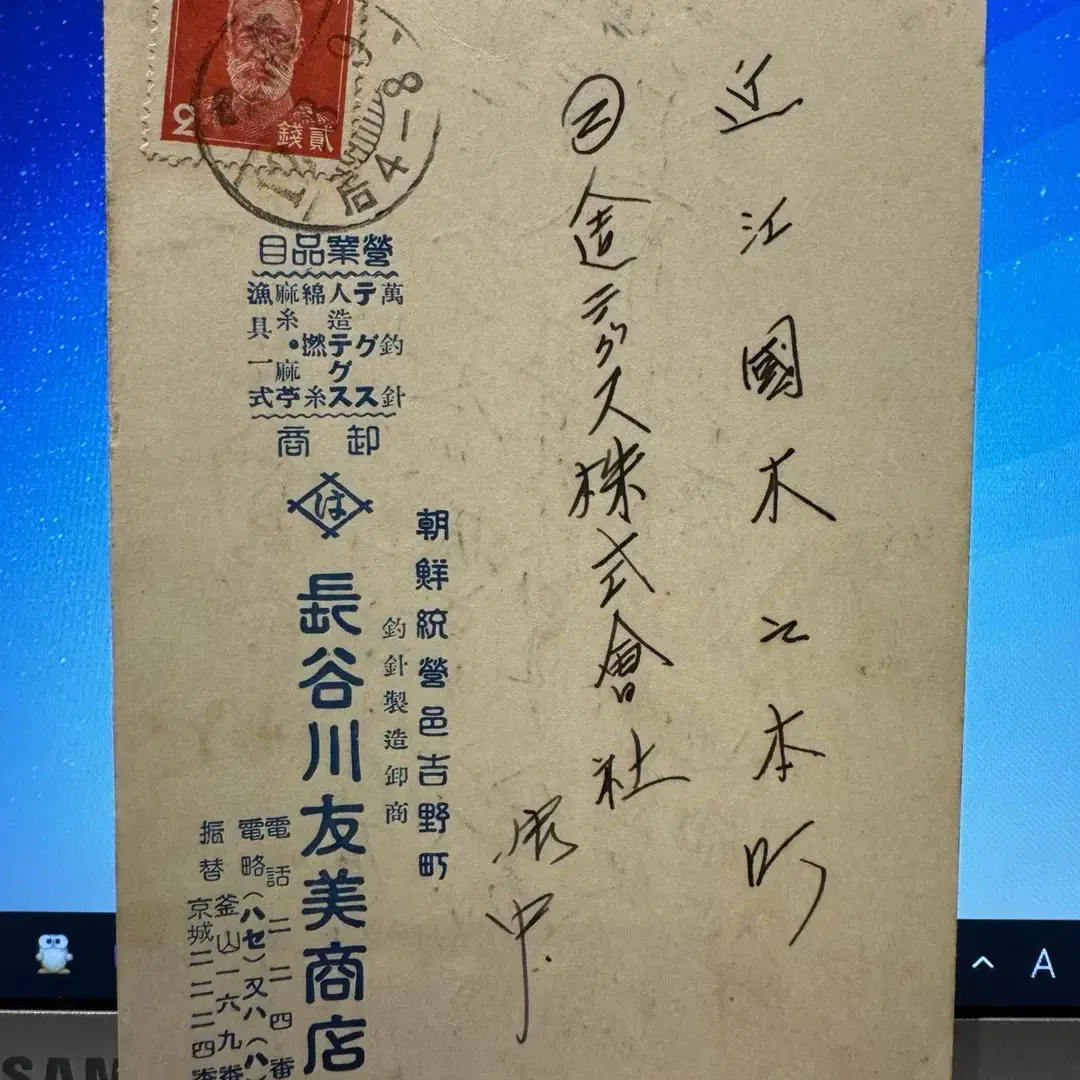 近江國木之本町
㋥人造テグス株式會社
御中
2
貳錢
后4-8
營業品目
萬釣針
テグス
人造テグス
綿撚糸
麻糸・麻苧
漁具一式
卸商
は
朝鮮統營邑吉野町
釣針製造卸商
長谷川友美商店
電話二二四番
電略(ハセ)又ハ(ハ
振替釜山一六九番
京城二二二四番
A
SAM